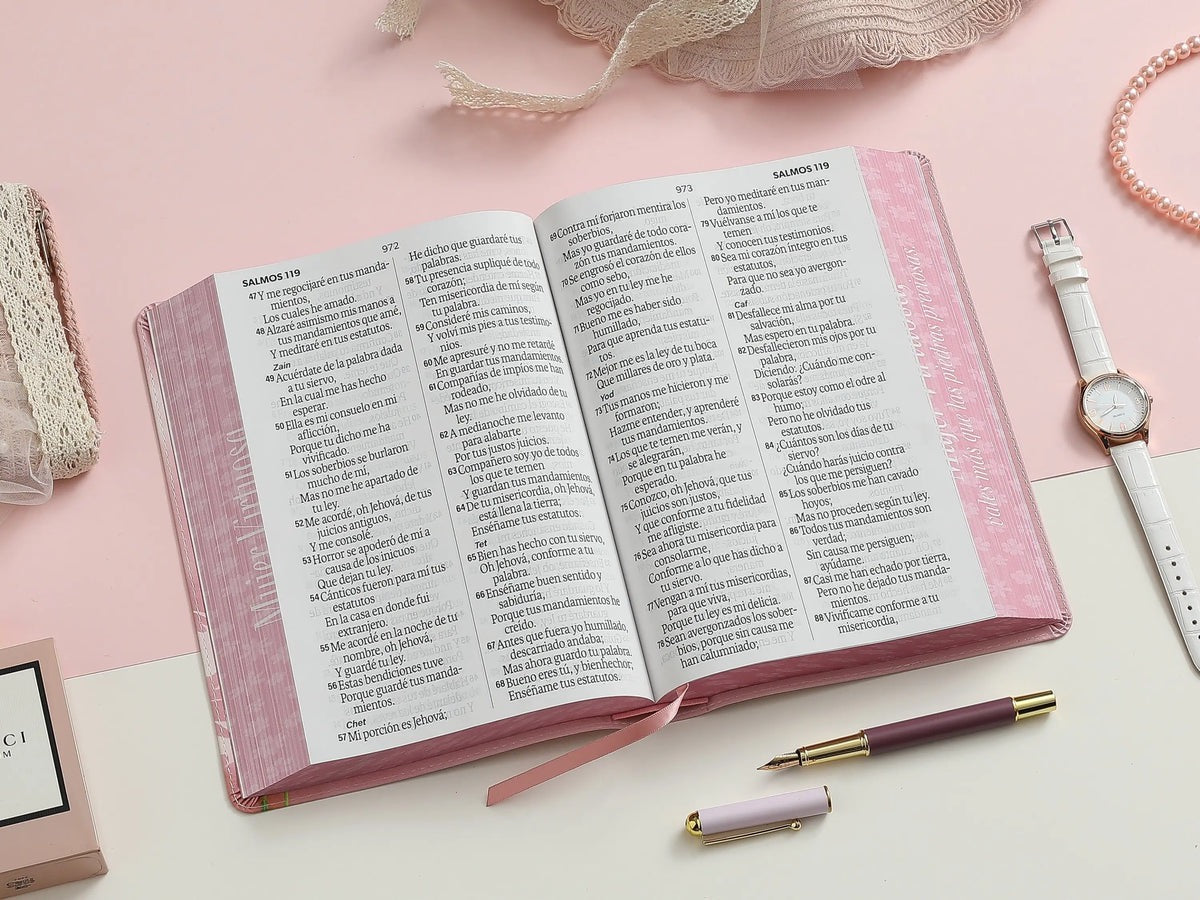 972
SALMOS 119
47 Y me regocijaré en tus manda-
mientos,
Los cuales he amado.
48 Alzaré asimismo mis manos a
tus mandamientos que amé,
Y meditaré en tus estatutos.
Zain
49 Acuérdate de la palabra dada
a tu siervo,
En la cual me has hecho
esperar.
50 Ella es mi consuelo en mi
aflicción,
Porque tu dicho me ha
vivificado.
51 Los soberbios se burlaron
mucho de mí,
Mas no me he apartado de
tu ley.
52 Me acordé, oh Jehová, de tus
juicios antiguos,
Y me consolé.
53 Horror se apoderó de mí a
causa de los inicuos
Que dejan tu ley.
54 Cánticos fueron para mí tus
estatutos
En la casa en donde fui
extranjero.
55 Me acordé en la noche de tu
nombre, oh Jehová,
Y guardé tu ley.
56 Estas bendiciones tuve
Porque guardé tus manda-
mientos.
Chet
57 Mi porción es Jehová;
He dicho que guardaré tus
palabras.
58 Tu presencia supliqué de todo
corazón;
Ten misericordia de mí según
tu palabra.
59 Consideré mis caminos,
Y volví mis pies a tus testimo-
nios.
60 Me apresuré y no me retardé
En guardar tus mandamientos.
61 Compañías de impíos me han
rodeado,
Mas no me he olvidado de tu
ley.
62 A medianoche me levanto
para alabarte
Por tus justos juicios.
63 Compañero soy yo de todos
los que te temen
Y guardan tus mandamientos.
64 De tu misericordia, oh Jehová,
está llena la tierra;
Enséñame tus estatutos.
Tet
65 Bien has hecho con tu siervo,
Oh Jehová, conforme a tu
palabra.
66 Enséñame buen sentido y
sabiduría,
Porque tus mandamientos he
creído.
67 Antes que fuera yo humillado,
descarriado andaba;
Mas ahora guardo tu palabra.
68 Bueno eres tú, y bienhechor;
Enséñame tus estatutos.
973
SALMOS 119
69 Contra mí forjaron mentira los
soberbios,
Mas yo guardaré de todo cora-
zón tus mandamientos.
70 Se engrosó el corazón de ellos
como sebo,
Mas yo en tu ley me he
regocijado.
71 Bueno me es haber sido
humillado,
Para que aprenda tus estatu-
tos.
72 Mejor me es la ley de tu boca
Que millares de oro y plata.
Yod
73 Tus manos me hicieron y me
formaron;
Hazme entender, y aprenderé
tus mandamientos.
74 Los que te temen me verán, y
se alegrarán,
Porque en tu palabra he
esperado.
75 Conozco, oh Jehová, que tus
juicios son justos,
Y que conforme a tu fidelidad
me afligiste.
76 Sea ahora tu misericordia para
consolarme,
Conforme a lo que has dicho a
tu siervo.
77 Vengan a mí tus misericordias,
para que viva,
Porque tu ley es mi delicia.
78 Sean avergonzados los sober-
bios, porque sin causa me
han calumniado;
Pero yo meditaré en tus man-
damientos.
79 Vuélvanse a mí los que te
temen
Y conocen tus testimonios.
80 Sea mi corazón íntegro en tus
estatutos,
Para que no sea yo avergon-
zado.
Caf
81 Desfallece mi alma por tu
salvación,
Mas espero en tu palabra.
82 Desfallecieron mis ojos por tu
palabra,
Diciendo: ¿Cuándo me con-
solarás?
83 Porque estoy como el odre al
humo;
Pero no he olvidado tus
estatutos.
84 ¿Cuántos son los días de tu
siervo?
¿Cuándo harás juicio contra
los que me persiguen?
85 Los soberbios me han cavado
hoyos;
Mas no proceden según tu ley.
86 Todos tus mandamientos son
verdad;
Sin causa me persiguen;
ayúdame.
87 Casi me han echado por tierra,
Pero no he dejado tus manda-
mientos.
88 Vivifícame conforme a tu
misericordia,
Mujer Virtuosa
vales más que las piedras preciosas
CI
M